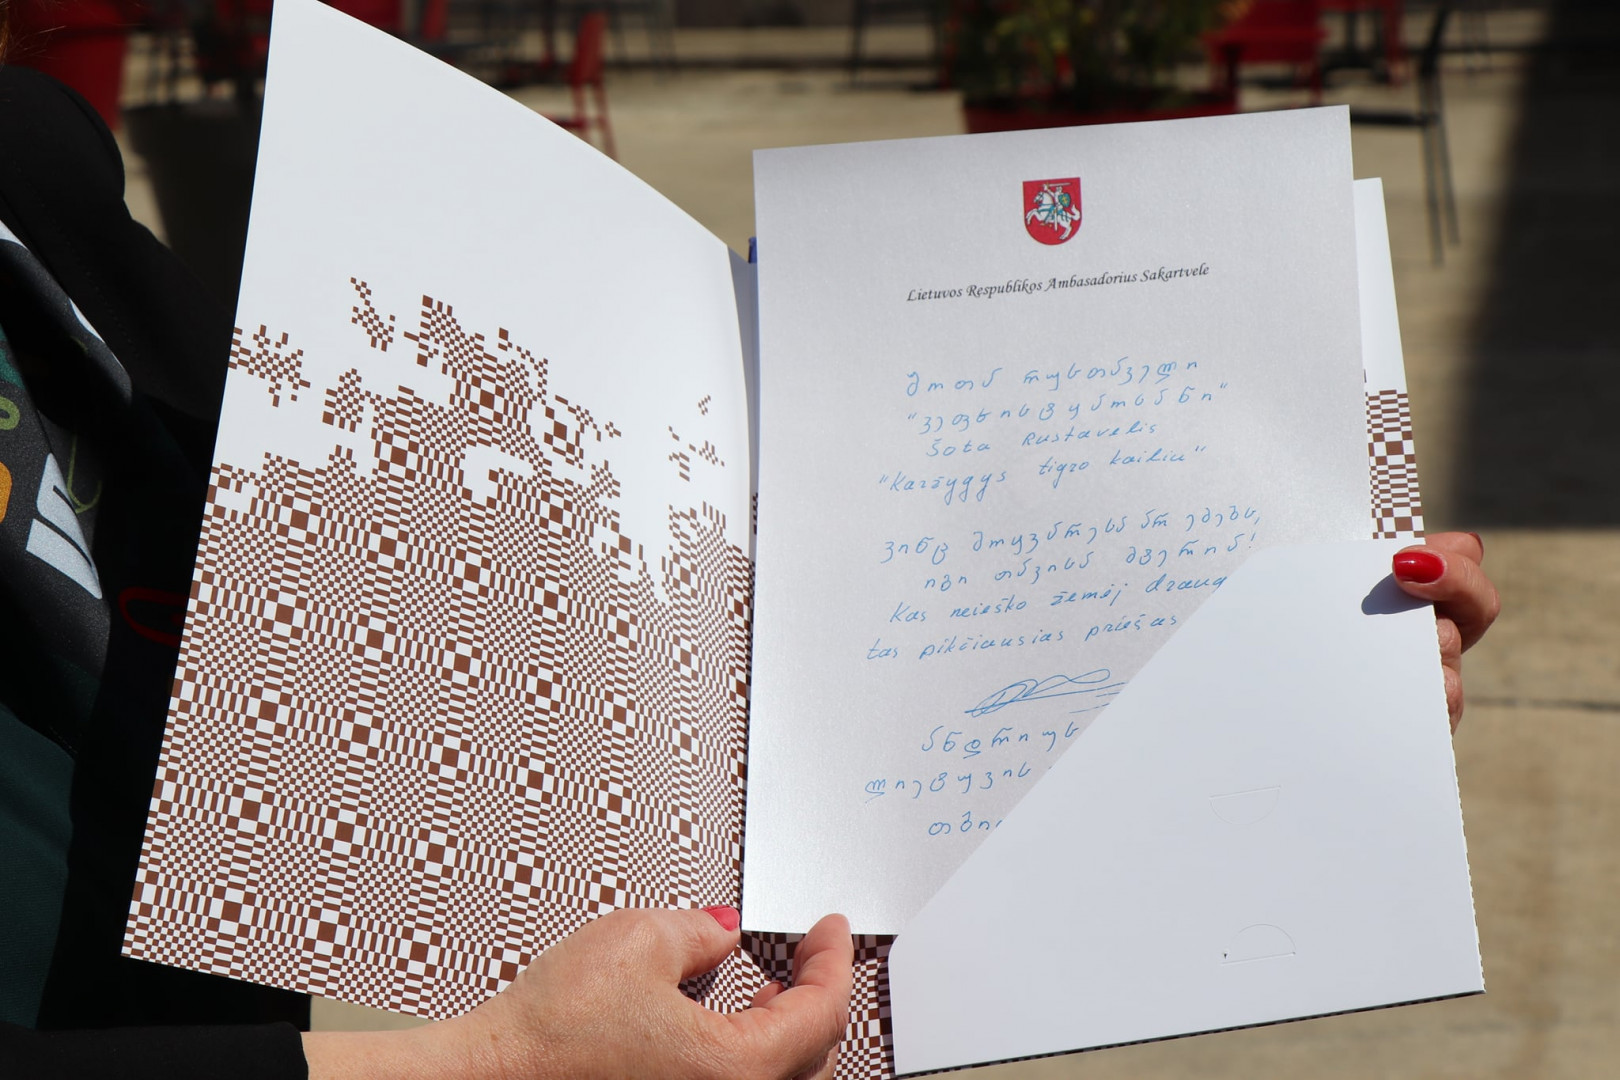 Lietuvos Respublikos Ambasadorius Sakartvele
შოთა რუსთაველი
"ვეფხისტყაოსანი"
Šota Rustavelis
"Karžygys tigro kailiu"
ვინც მოყვარესა არ ეძებს,
იგი თავისა მტერია!
Kas neieško žemėj draug
tas pikčiausias priešas
ანდრიუს
ლიეტუვის
თბი